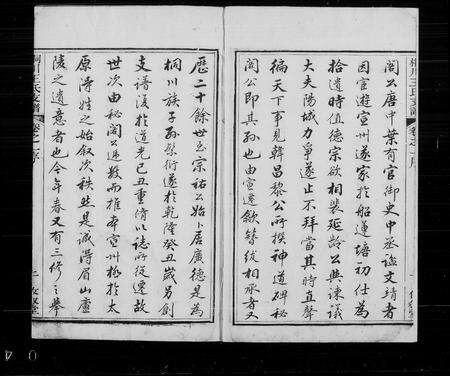 閎公唐中葉育官御史中丞謚文靖者
因官遊宣州遂家於船蓮塘初仕為
拾遺時值德宗欲相裴延齡公與諫議
大夫陽城力爭遂止不拜當其時直聲
徧天下事見韓昌黎公所撰神道碑秘
閣公即其孫也由宣遷歙簪紱相承者又
歷二十餘世至宗祐公始卜居廣德是為
桐川族子孫繁衍遂於乾隆癸丑歲另創
支譜復於道光己丑重脩以誌所從遷故
世次由秘閣公遞數而推本宣州極於太
原得姓之始叙次秩然是誠得眉山廬
陵之遺意者也今年春又有三修之舉